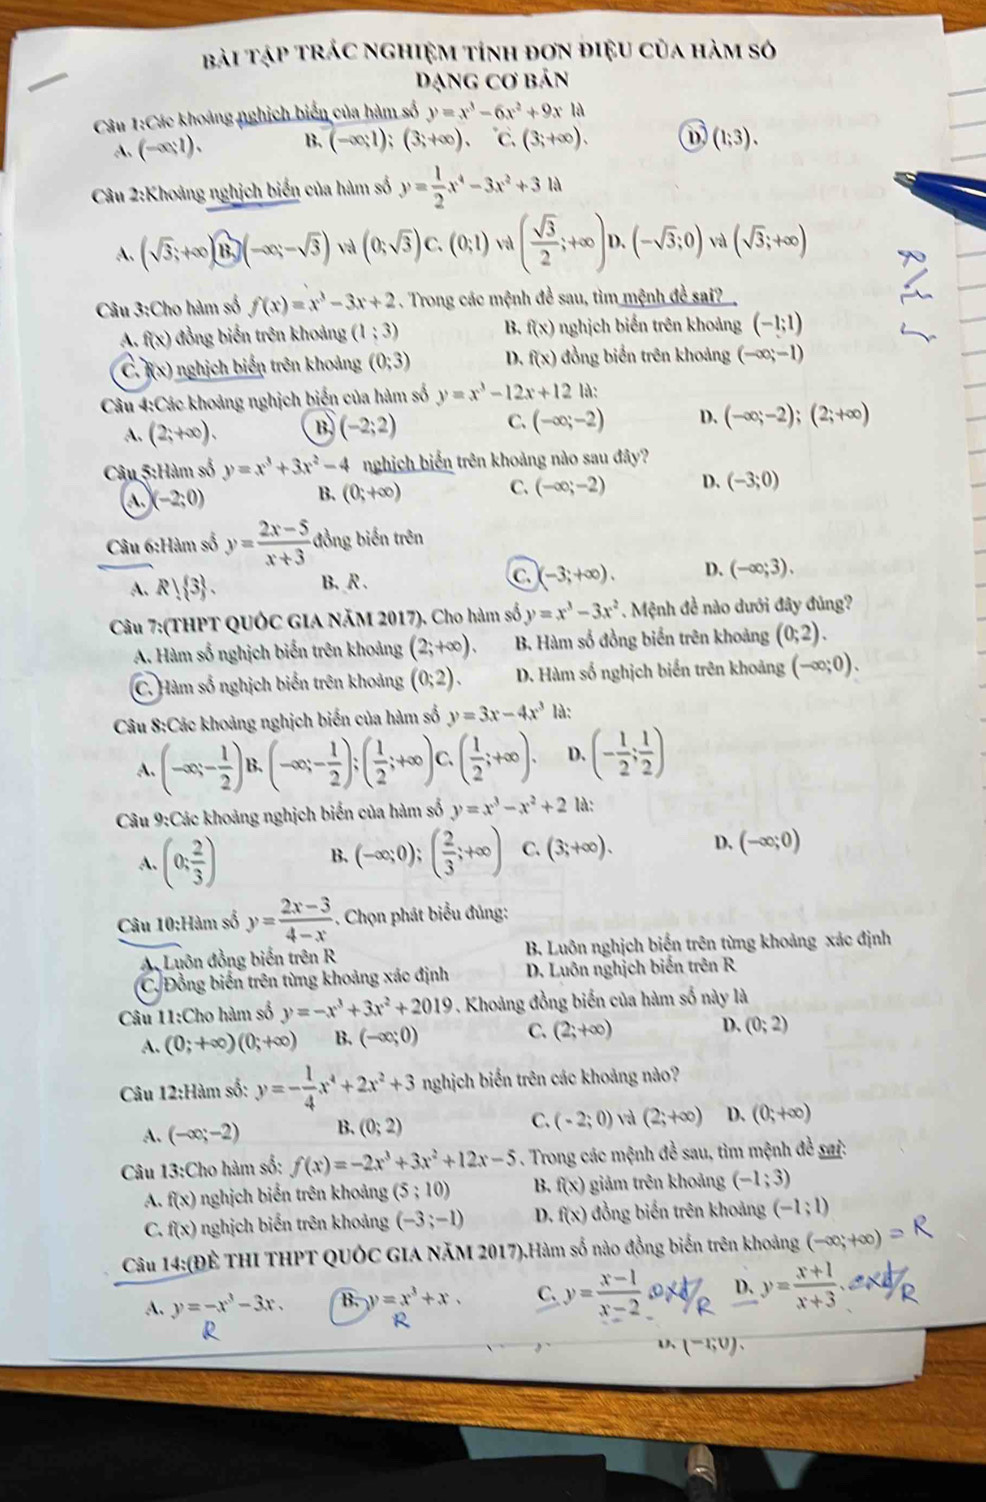 BÀI TẬP TRẮC NGHIỆM TÍNH ĐƠN ĐIỆU CỦA HÀM SỐ
DẠNG CƠ BẢN
Câu 1:Các khoảng nghịch biến của hàm số y = x³ − 6x² + 9x là
A. (−∞;1). B. (−∞;1); (3;+∞). C. (3;+∞). D. (1;3).
Câu 2:Khoảng nghịch biến của hàm số y = 1/2 x⁴ − 3x² + 3 là
A. (√3;+∞) B. (−∞;−√3) và (0;√3) C. (0;1) và (√3/2;+∞) D. (−√3;0) và (√3;+∞)
Câu 3:Cho hàm số f(x) = x³ − 3x + 2. Trong các mệnh đề sau, tìm mệnh đề sai?
A. f(x) đồng biến trên khoảng (1 ; 3) B. f(x) nghịch biến trên khoảng (−1;1)
C. f(x) nghịch biến trên khoảng (0;3) D. f(x) đồng biến trên khoảng (−∞;−1)
Câu 4:Các khoảng nghịch biến của hàm số y = x³ − 12x + 12 là:
A. (2;+∞). B. (−2;2) C. (−∞;−2) D. (−∞;−2); (2;+∞)
Câu 5:Hàm số y = x³ + 3x² − 4 nghịch biến trên khoảng nào sau đây?
A. (−2;0) B. (0;+∞) C. (−∞;−2) D. (−3;0)
Câu 6:Hàm số y = (2x − 5)/(x + 3) đồng biến trên
A. R\{3}. B. R. C. (−3;+∞). D. (−∞;3).
Câu 7:(THPT QUỐC GIA NĂM 2017). Cho hàm số y = x³ − 3x². Mệnh đề nào dưới đây đúng?
A. Hàm số nghịch biến trên khoảng (2;+∞). B. Hàm số đồng biến trên khoảng (0;2).
C. Hàm số nghịch biến trên khoảng (0;2). D. Hàm số nghịch biến trên khoảng (−∞;0).
Câu 8:Các khoảng nghịch biến của hàm số y = 3x − 4x³ là:
A. (−∞;−1/2) B. (−∞;−1/2); (1/2;+∞) C. (1/2;+∞). D. (−1/2;1/2)
Câu 9:Các khoảng nghịch biến của hàm số y = x³ − x² + 2 là:
A. (0;2/3) B. (−∞;0); (2/3;+∞) C. (3;+∞). D. (−∞;0)
Câu 10:Hàm số y = (2x − 3)/(4 − x). Chọn phát biểu đúng:
A. Luôn đồng biến trên R B. Luôn nghịch biến trên từng khoảng xác định
C. Đồng biến trên từng khoảng xác định D. Luôn nghịch biến trên R
Câu 11:Cho hàm số y = −x³ + 3x² + 2019. Khoảng đồng biến của hàm số này là
A. (0; +∞)(0;+∞) B. (−∞;0) C. (2;+∞) D. (0; 2)
Câu 12:Hàm số: y = −1/4 x⁴ + 2x² + 3 nghịch biến trên các khoảng nào?
A. (−∞;−2) B. (0; 2) C. ( - 2; 0) và (2;+∞) D. (0;+∞)
Câu 13:Cho hàm số: f(x) = −2x³ + 3x² + 12x − 5. Trong các mệnh đề sau, tìm mệnh đề sai:
A. f(x) nghịch biến trên khoảng (5 ; 10) B. f(x) giảm trên khoảng (−1 ; 3)
C. f(x) nghịch biến trên khoảng (−3 ;−1) D. f(x) đồng biến trên khoảng (−1 ; 1)
Câu 14:(ĐỀ THI THPT QUỐC GIA NĂM 2017).Hàm số nào đồng biến trên khoảng (−∞;+∞) = R
A. y = −x³ − 3x. B. y = x³ + x. C. y = (x − 1)/(x − 2) D. y = (x + 1)/(x + 3).
R R R R
D. (−1;0).